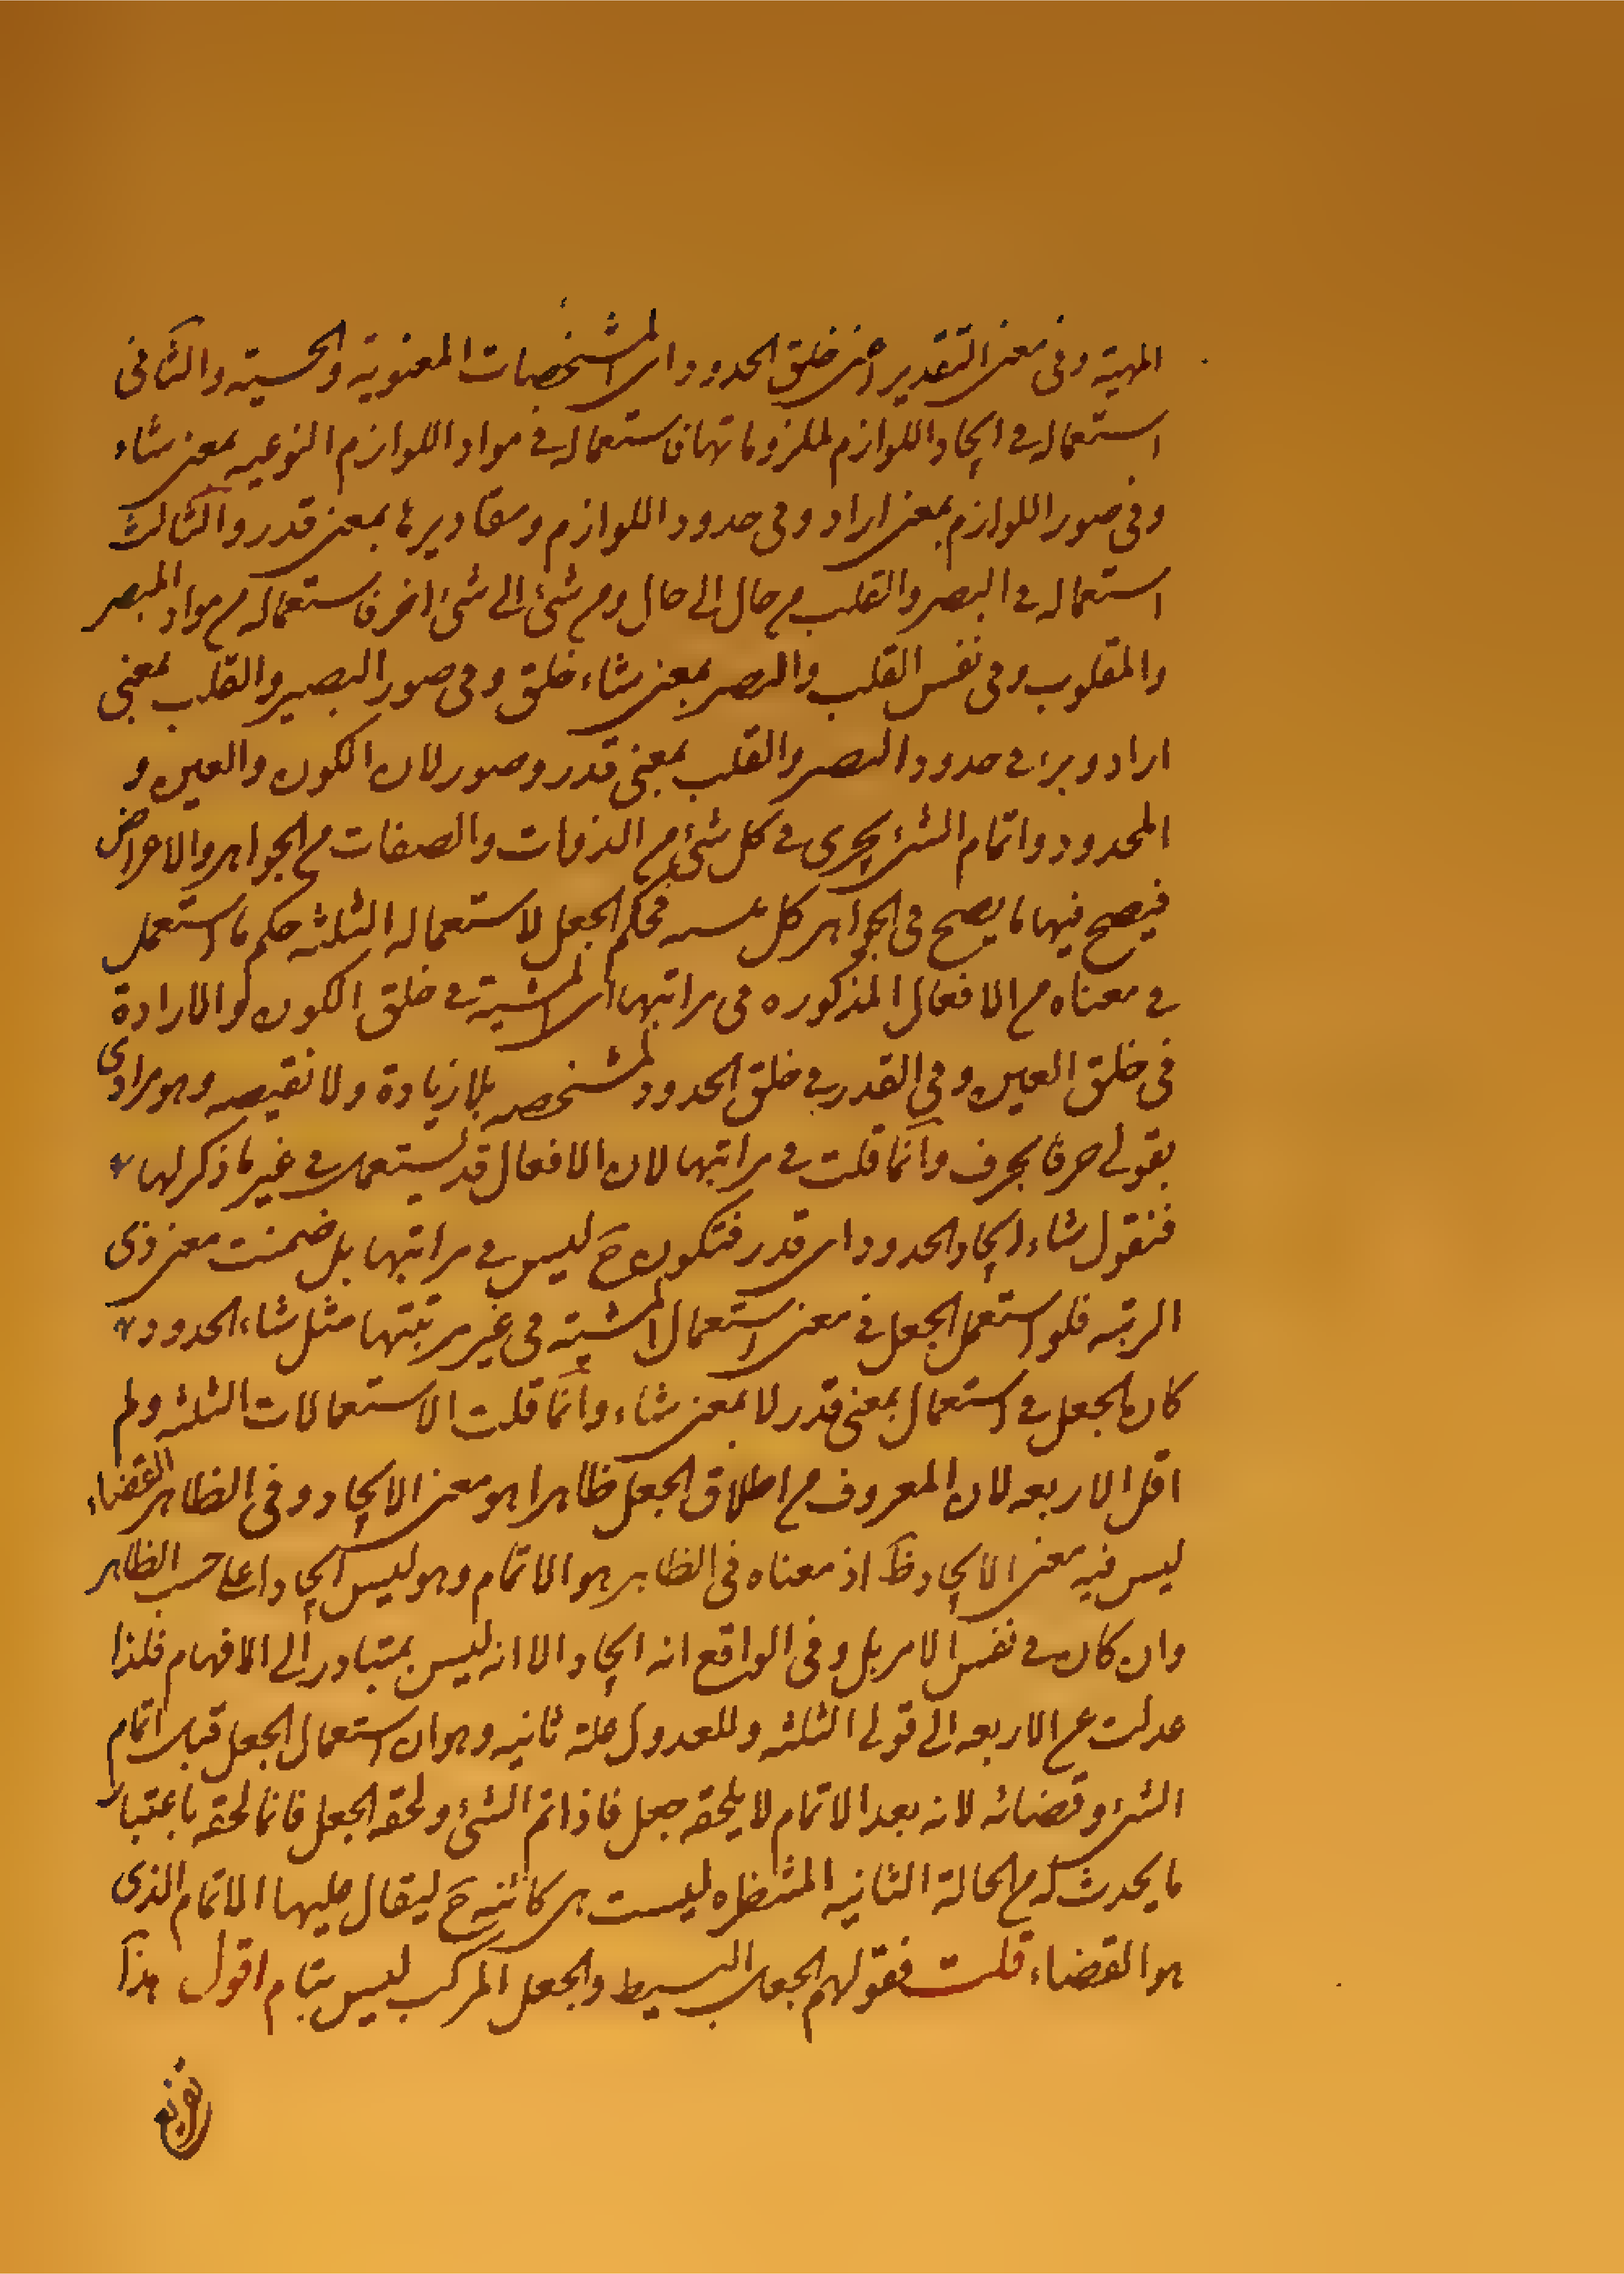 المهية وفى معنى التقدير اعنى خلق الحدود اى المشخصات المعنوية والحسية والثانى
استعماله فى ايجاد اللوازم لملزوماتها فاستعماله فى مواد اللوازم النوعيه بمعنى شاء
وفى صور اللوازم بمعنى اراد وفى حدود اللوازم ومقاديرها بمعنى قدر والثالث
استعماله فى البصر والقلب من حال الى حال ومن شئ الى شئ اخر فاستعماله من مواد المبصر
والمقلوب وفى نفس القلب والبصر بمعنى شاء خلق وفى صور البصير والقلب بمعنى
اراد وبرء فى حدود البصر والقلب بمعنى قدر وصور لان الكون والعين و
المحدود واتمام الشئ يجرى فى كل شئ من الذوات والصفات من الجواهر والاعراض
فيصح فيها ما يصح فى الجواهر كل بحسبه فحكم الجعل لاستعماله الثلثه حكم ما استعمل
فى معناه من الافعال المذكوره فى مراتبها اى المشية فى خلق الكون والارادة
فى خلق العين وفى القدر فى خلق الحدود المشخصه بلا زيادة ولا نقيصه وهو مرادى
بقولى حرفا بحرف وانما قلت فى مراتبها لان الافعال قد يستعمل فى غير ما ذكر لها
فنقول شاء ايجاد الحدود اى قدر فتكون ح ليس فى مراتبها بل ضمنت معنى ذى
الرتبه فلو استعمل الجعل فى معنى استعمال المشية فى غير مرتبتها مثل شاء الحدود
كان الجعل فى استعمال بمعنى قدر لا بمعنى شاء وانما قلت الاستعمالات الثلثه ولم
اقل الاربعه لان المعروف من اطلاق الجعل ظاهرا هو معنى الايجاد وفى الظاهر القضاء
ليس فيه معنى الايجاد ظ اذ معناه فى الظاهر هو الاتمام وهو ليس ايجادا على حسب الظاهر
وان كان فى نفس الامر بل وفى الواقع انه ايجاد الا انه ليس بمتبادر الى الافهام فلذا
عدلت عن الاربعه الى قولى الثلثه وللعدول علة ثانيه وهو ان استعمال الجعل قبل اتمام
الشئ وقضائه لانه بعد الاتمام لا يلحقه جعل فاذا تم الشئ ولحقه الجعل فانما لحقه باعتبار
ما يحدث له من الحالة الثانيه المنتظره ليست هى كائنه ح ليقال عليها الاتمام الذى
هو القضاء قلت فقولهم الجعل البسيط والجعل المركب ليس بتام اقول هذا